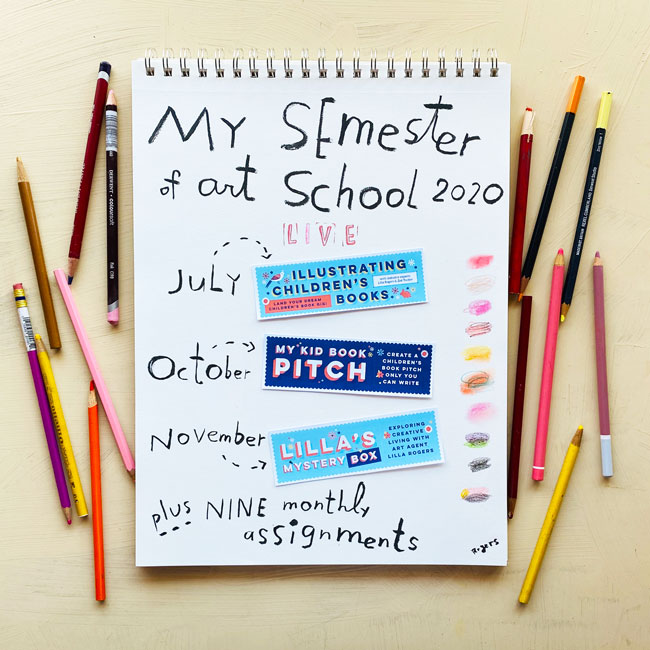 MY SEMESTER
of art SCHOOL 2020
LIVE
JULY
ILLUSTRATING
CHILDREN'S
BOOKS.
LAND YOUR DREAM
CHILDREN'S BOOK GIG!
October
MY KID BOOK
PITCH
CREATE A
CHILDREN'S
BOOK PITCH
ONLY YOU
CAN WRITE
November
LILLA'S
MYSTERY BOX
EXPLORING
CREATIVE
LIVING WITH
ART AGENT
LILLA ROGERS
plus NINE monthly
assignments
Rogers
DERWENT